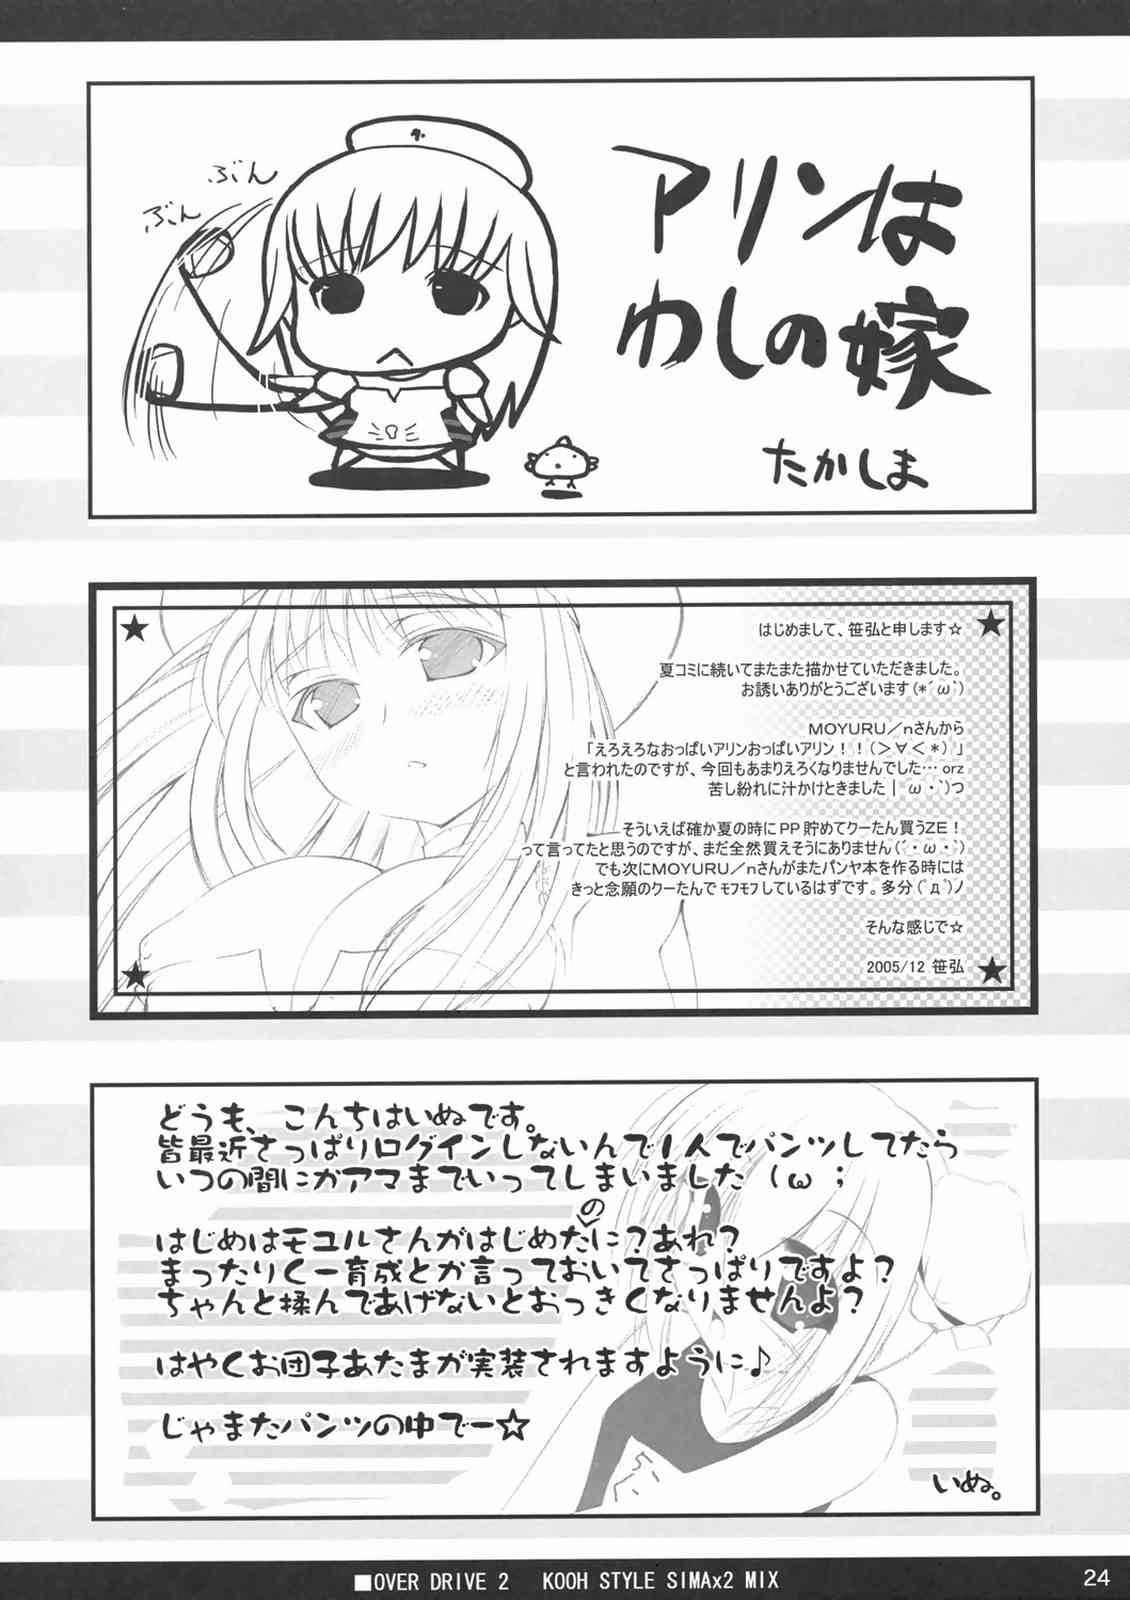 ぶん
ぶん
アリンは
わしの嫁
たかしま
はじめまして、笹弘と申します☆
夏コミに続いてまたまた描かせていただきました。
お誘いありがとうございます(*´ω`)
MOYURU／nさんから
「えろえろなおっぱいアリンおっぱいアリン！！(＞∀＜*)」
と言われたのですが、今回もあまりえろくなりませんでした… orz
苦し紛れに汁かけときました| ω・`)つ
そういえば確か夏の時にPP貯めてクーたん買うZE！
って言ってたと思うのですが、まだ全然買えそうにありません(´・ω・`)
でも次にMOYURU／nさんがまたパンヤ本を作る時には
きっと念願のクーたんでﾓﾌﾓﾌしているはずです。多分(ﾟдﾟ)ノ
そんな感じで☆
2005/12 笹弘
どうも、こんちはいぬです。
皆最近さっぱりログインしないんで1人でパンツしてたら
いつの間にかアマまでいってしまいました（ω；
の
はじめはモユルさんがはじめたに？あれ？
まったりくー育成とか言っておいてさっぱりですよ？
ちゃんと揉んであげないとおっきくなりませんよ？
はやくお団子あたまが実装されますように♪
じゃまたパンツの中でー☆
いぬ。
■OVER DRIVE 2 KOOH STYLE SIMAx2 MIX
24